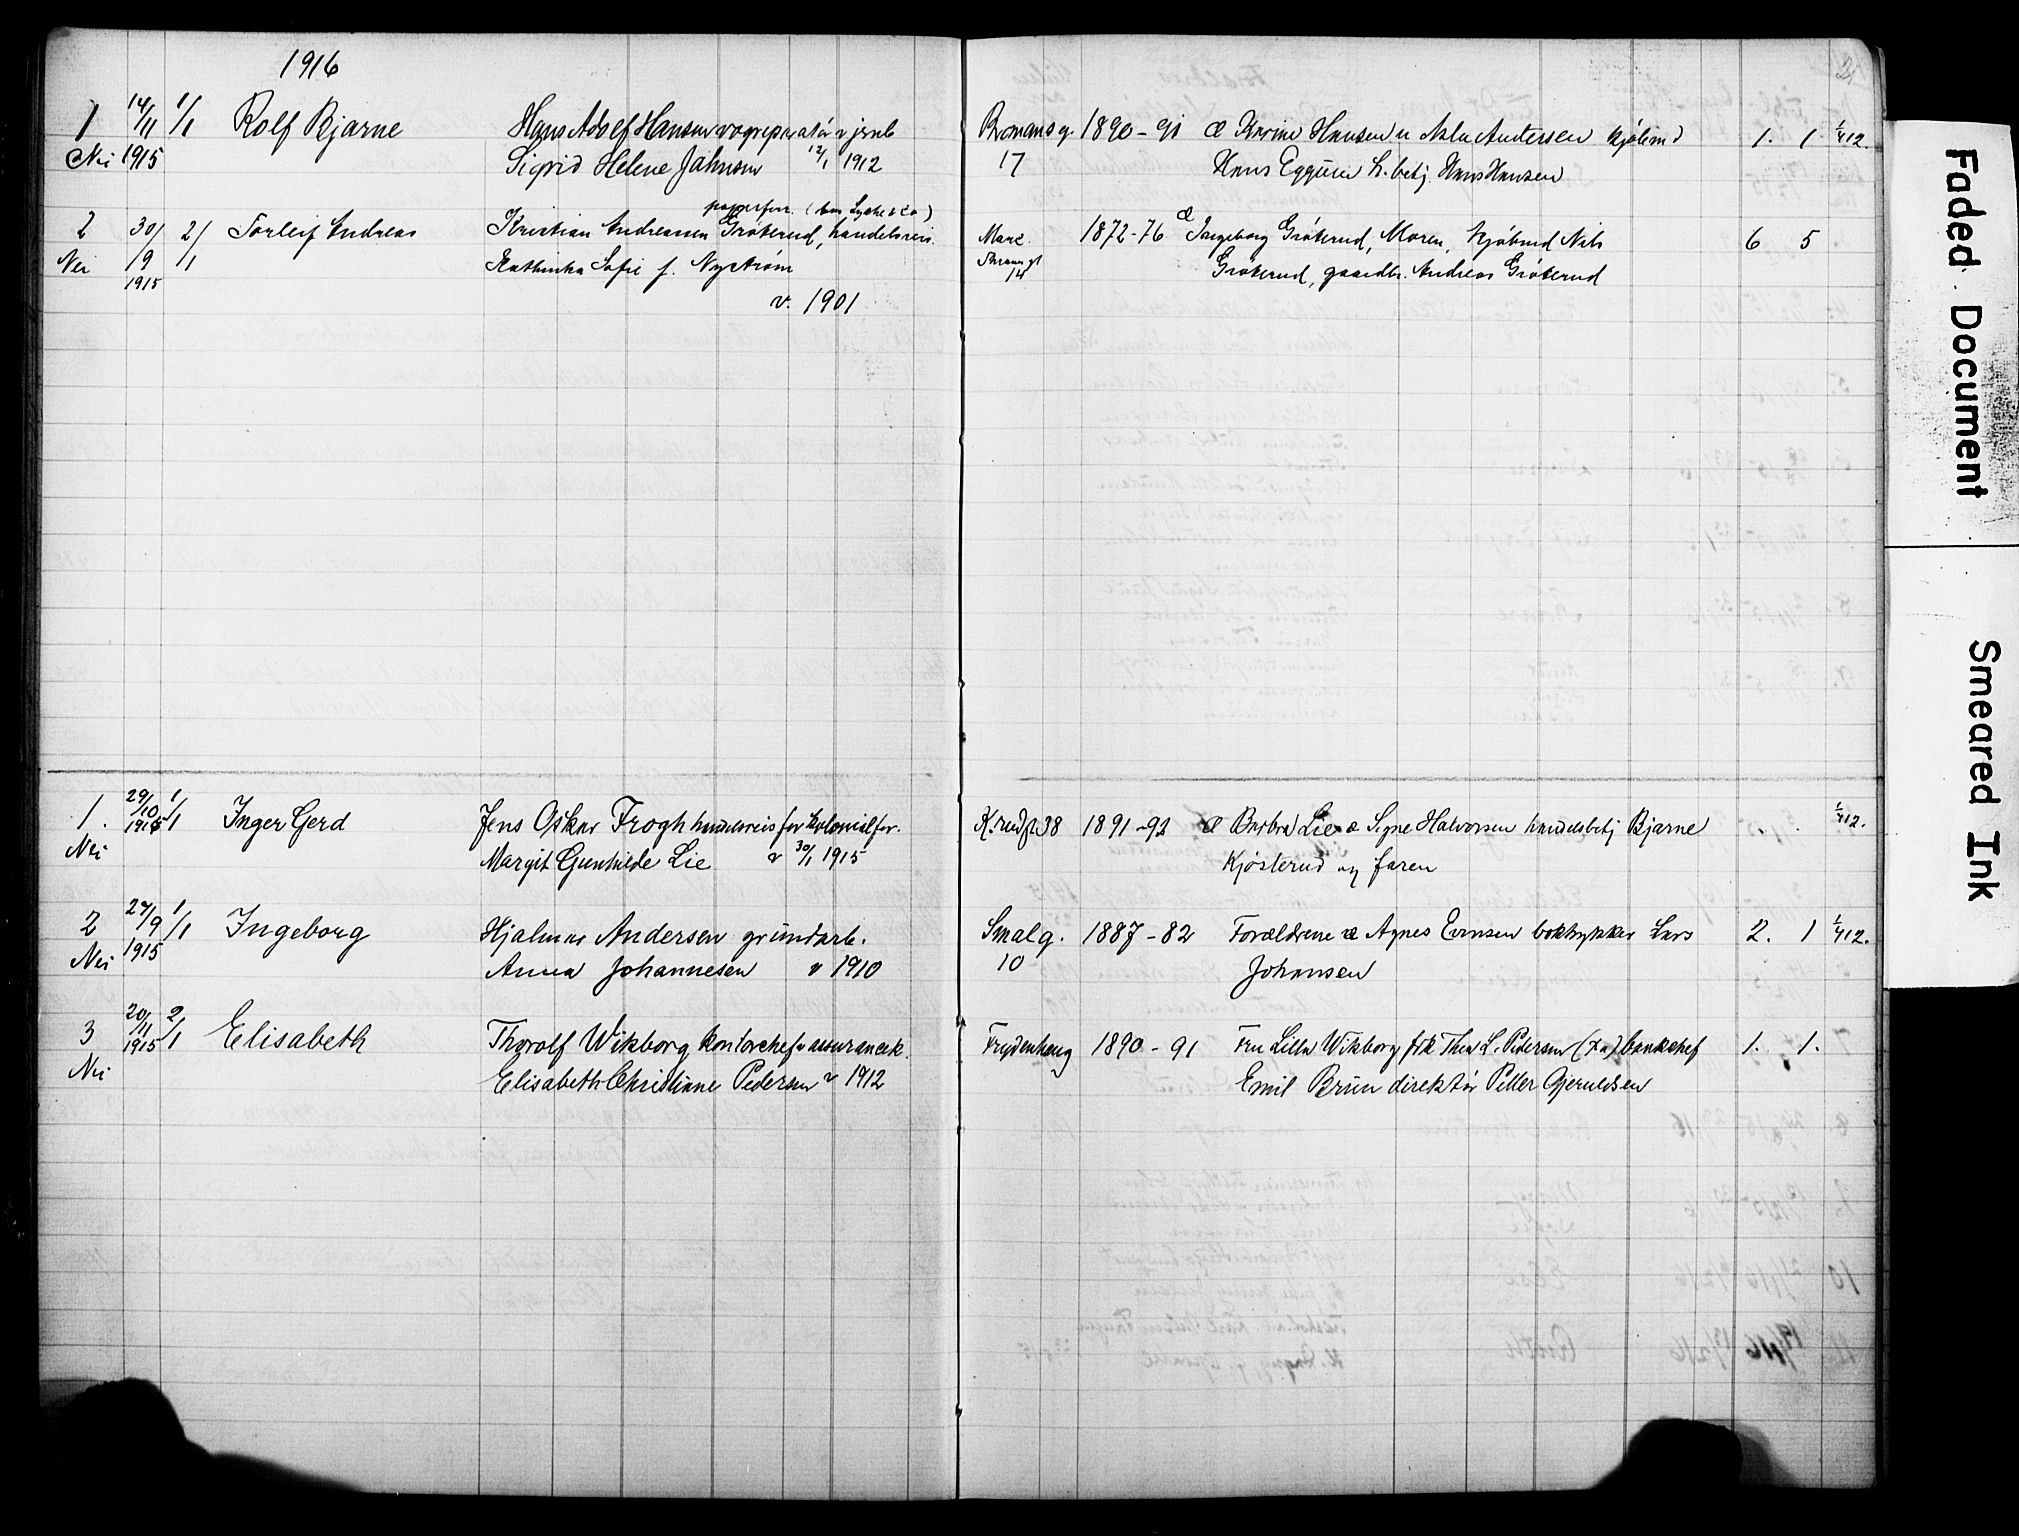 1916
1 14/11 1/1 Rolf Bjarne Hans Adolf Hansen vognreparatør v jernb Bromansg. 1890-91 æ Karine Hansen u Asla Andersen kjøbmd 1. 1 1/4 12.
Nei 1915 Sigrid Helene Jahnsen 12/1 1912 17 Hans Eggum h. betj. Hans Hansen
papirforr. (hos Lyche & Co)
2 30/ 2/ Torleif Andreas Kristian Andreassen Grøterud, handelsreis. Marc. 1872-76 æ Ingeborg Grøterud, Moren, kjøbmd Nils 6 5
Nei /9 /1 Kathinka Sofie f. Nystrøm Thranes gt Grøterud, gaardbr. Andreas Grøterud
1915 14
v. 1901
1. 29/10 1/1 Inger Gerd Jens Oskar Frogh handelsreis for kolonialfor. K.rudgt 38 1891-92 æ Borbra Lie æ Signe Halvorsen handelsbetj Bjarne . . 1/4 12.
Nei 1915 Margit Gunhilde Lie v 30/1 1915 Kjøsterud og faren
2 27/9 1/1 Ingeborg Hjalmar Andersen grundarb. Smalg. 1887-82 Forældrene æ Agnes Evensen boktrykker Lars 2. 1 1/4 12.
Nei 1915 Anna Johannesen v 1910 10 Johansen
3 20/11 2/1 Elisabeth Thorolf Wikborg kontorchef v assurancek. Frydenhaug 1890-91 Fru Lilla Wikborg frk Thea L. Pedersen bankchef 1. 1.
Nei 1915 Elisabeth Christiane Pedersen v 1912 Emil Brun direktør Peller Gjeruldsen
21
Faded Document
Smeared Ink